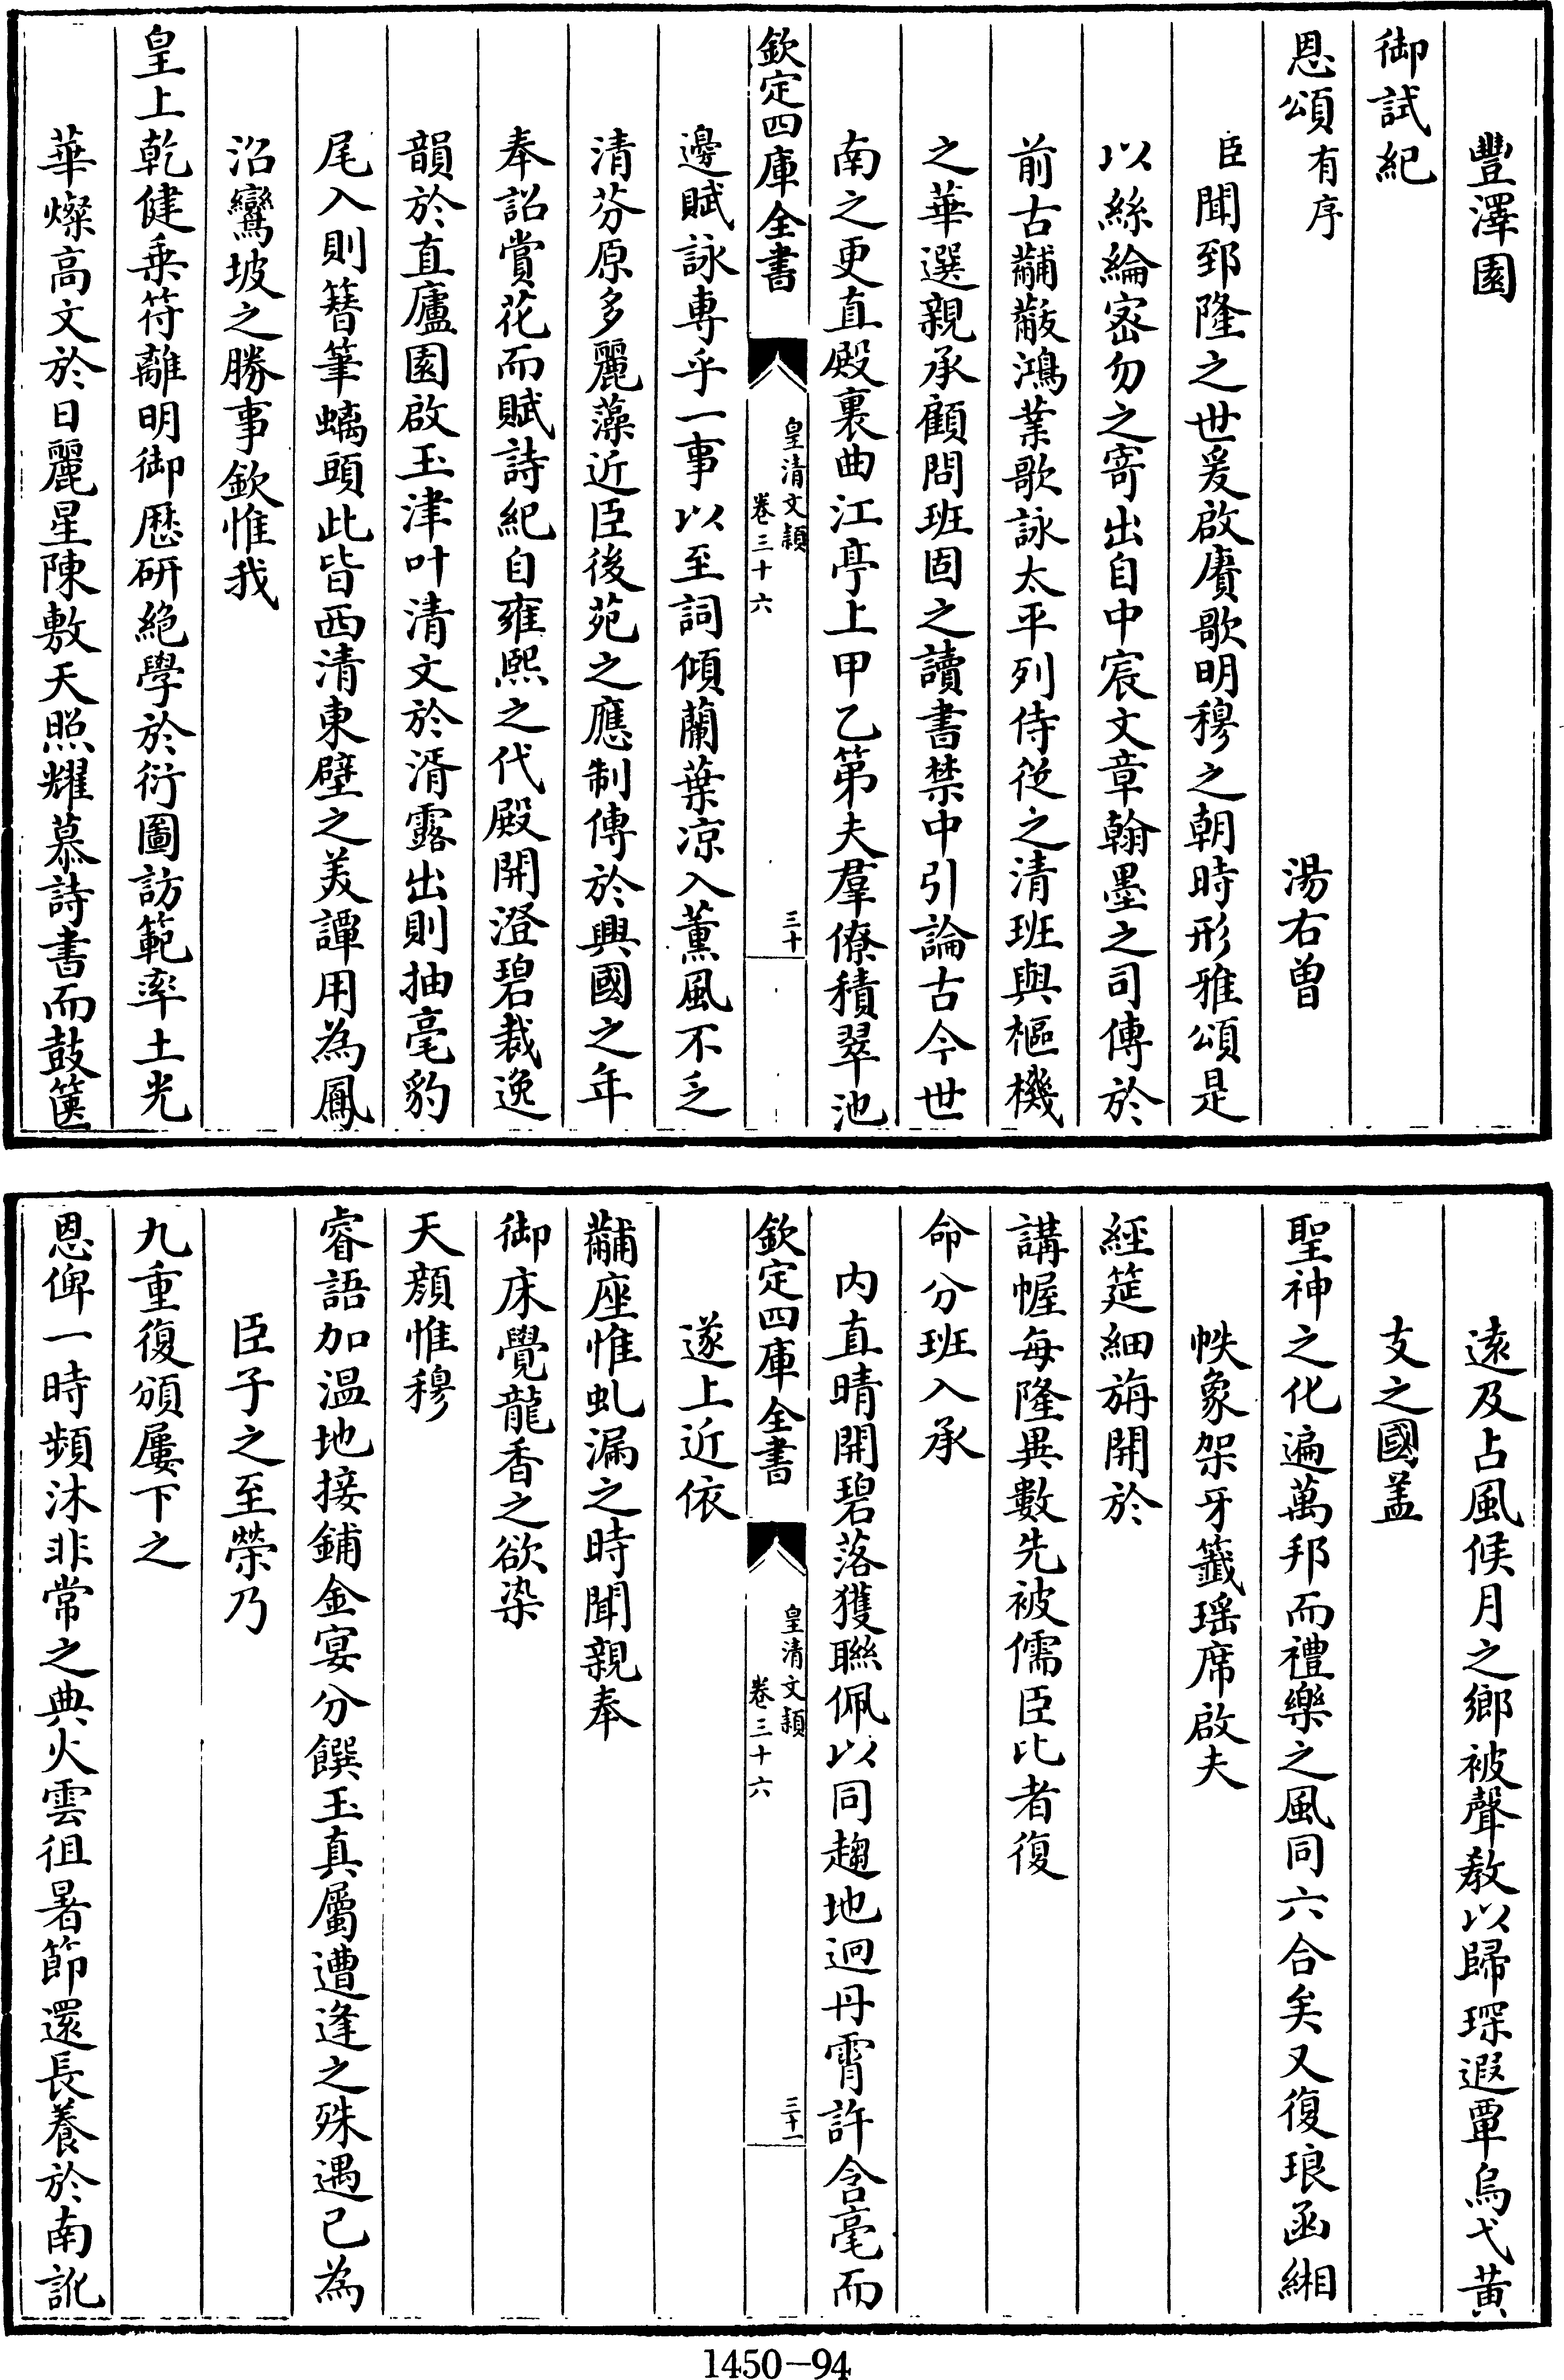 豐澤園
御試紀
恩頌有序 湯右曾
臣聞郅隆之世爰啟賡歌明穆之朝時形雅頌是
以絲綸宻勿之寄出自中宸文章翰墨之司傳於
前古黼黻鴻業歌詠太平列侍從之清班與樞機
之華選親承顧問班固之讀書禁中引論古今世
南之更直殿裏曲江亭上甲乙第夫羣僚積翠池
欽定四庫全書 皇清文頴 卷三十六 三十
邊賦詠專乎一事以至詞傾蘭葉凉入薫風不乏
清芬原多麗藻近臣後苑之應制傳於興國之年
奉詔賞花而賦詩紀自雍熙之代殿開澄碧裁逸
韻於直廬園啟玉津叶清文於湑露出則抽毫豹
尾入則簪筆螭頭此皆西清東壁之美譚用為鳳
沼鸞坡之勝事欽惟我
皇上乾健乗符離明御厯研絶學於衍圖訪範率土光
華燦高文於日麗星陳敷天照耀慕詩書而鼓篋
遠及占風候月之鄉被聲教以歸琛遐覃烏弋黄
支之國盖
聖神之化遍萬邦而禮樂之風同六合矣又復琅函緗
帙象架牙籤瑶席啟夫
經筵細旃開於
講幄每隆異數先被儒臣比者復
命分班入承
内直晴開碧落獲聯佩以同趨地迥丹霄許含毫而
欽定四庫全書 皇清文頴 卷三十六 三十一
遂上近依
黼座惟虬漏之時聞親奉
御床覺龍香之欲染
天顔惟穆
睿語加温地接鋪金宴分饌玉真屬遭逢之殊遇已為
臣子之至榮乃
九重復頒屢下之
恩俾一時頻沐非常之典火雲徂暑節還長養於南訛
1450-94